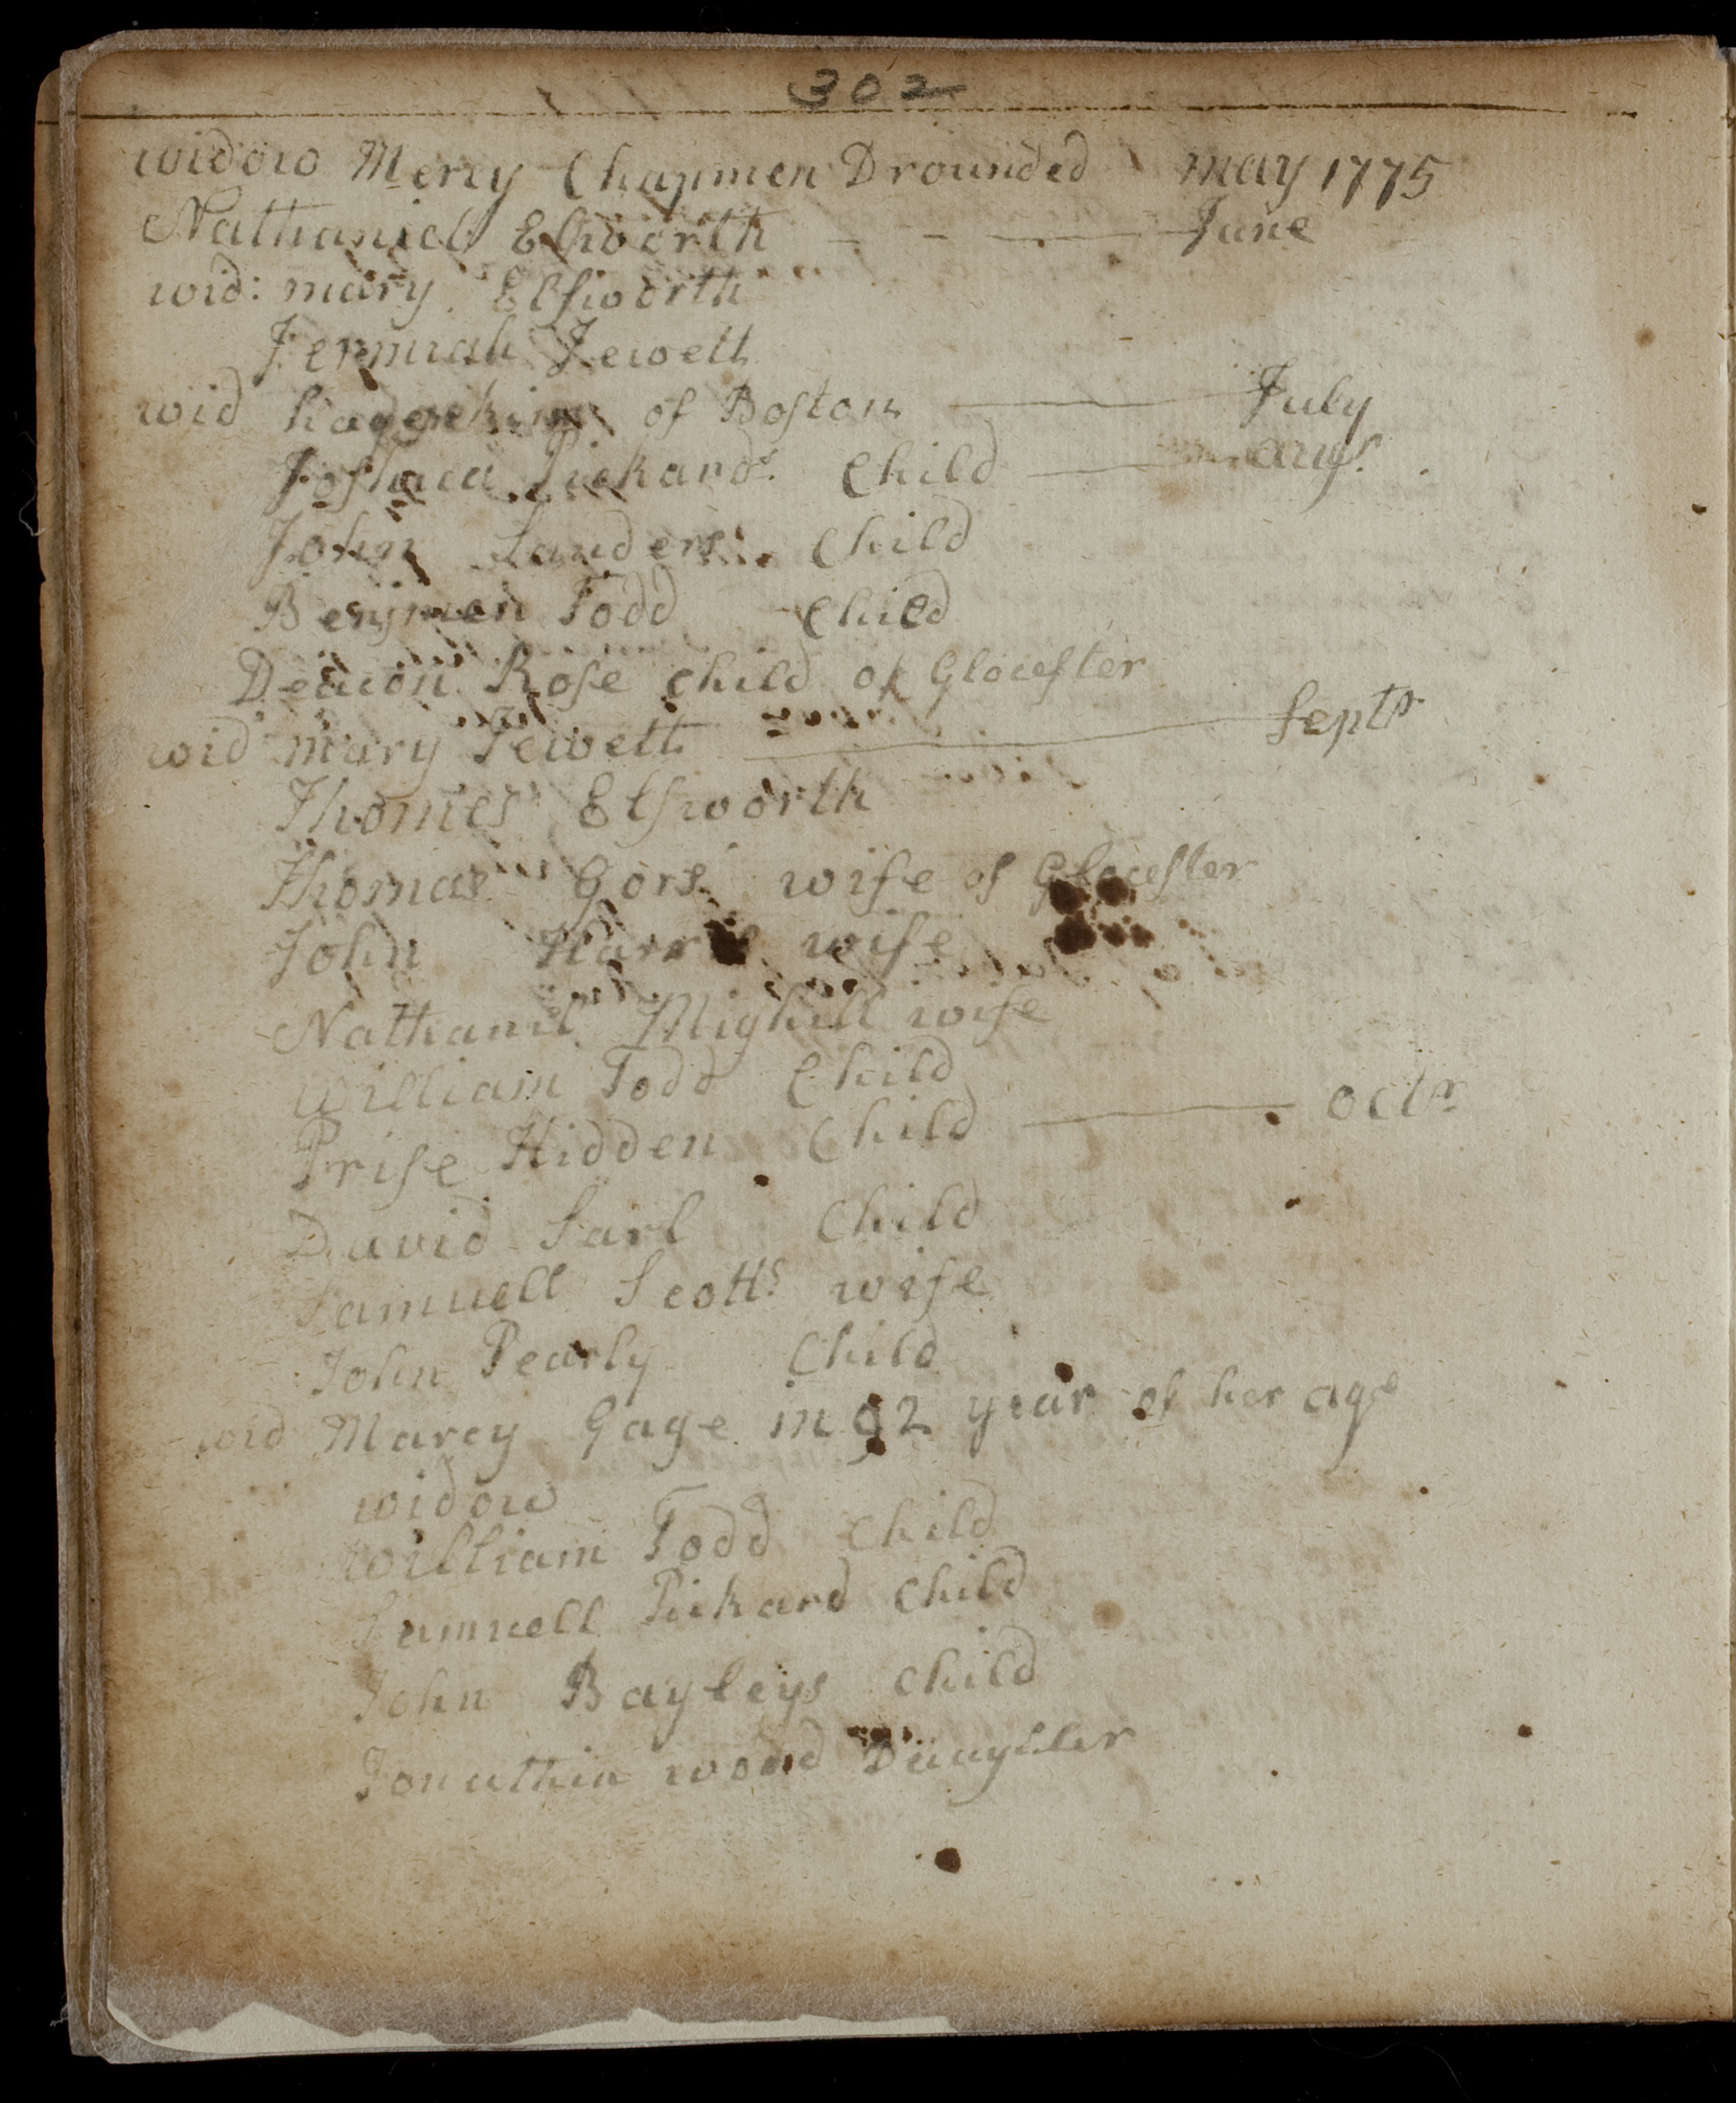 302
widow Mercy Chapmen Drounded may 1775
Nathaniell Elsworth June
wid: mary Elsworth
Jermiah Jewett
wid of Boston July
Joshua Pickards Child augt
John Sanders Child
Benjmen Todd Child
Deacon Rose child of Glocester
wid mary Jewett Septr
Thomes Elsworth
Thomas Gors wife of Glocester
John Harris wife
Nathanil Mighill wife
William Todd Child
Prise Hidden Child octr
David Sarl Child
Samuell Scotts wife
John Pearly Child
wid Marcy Gage in 92 year of her age
widow
William Todd Child
Samuell Pickard Child
John Bayleys Child
Jonathin wood Daughter